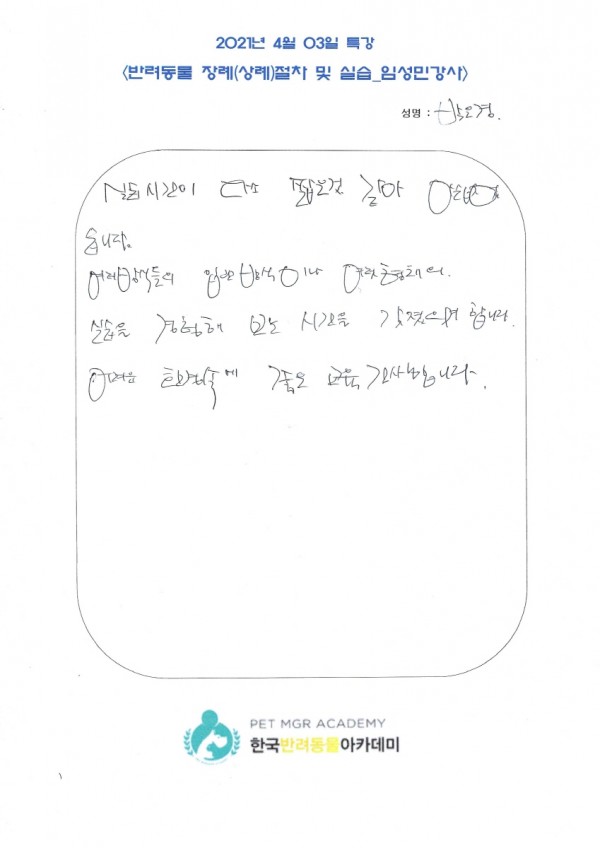 2021년 4월 03일 특강
<반려동물 장례(상례)절차 및 실습_임성민강사>
성명 : 박오경.
실습시간이 다소 짧은것 같아 아쉽
습니다.
여러방식들의 염반방식이나 여러형태의.
실습을 경험해 보는 시간을 가졌으면 합니다.
어려운 환경속에 좋은 교육 감사합니다.
PET MGR ACADEMY
한국반려동물아카데미